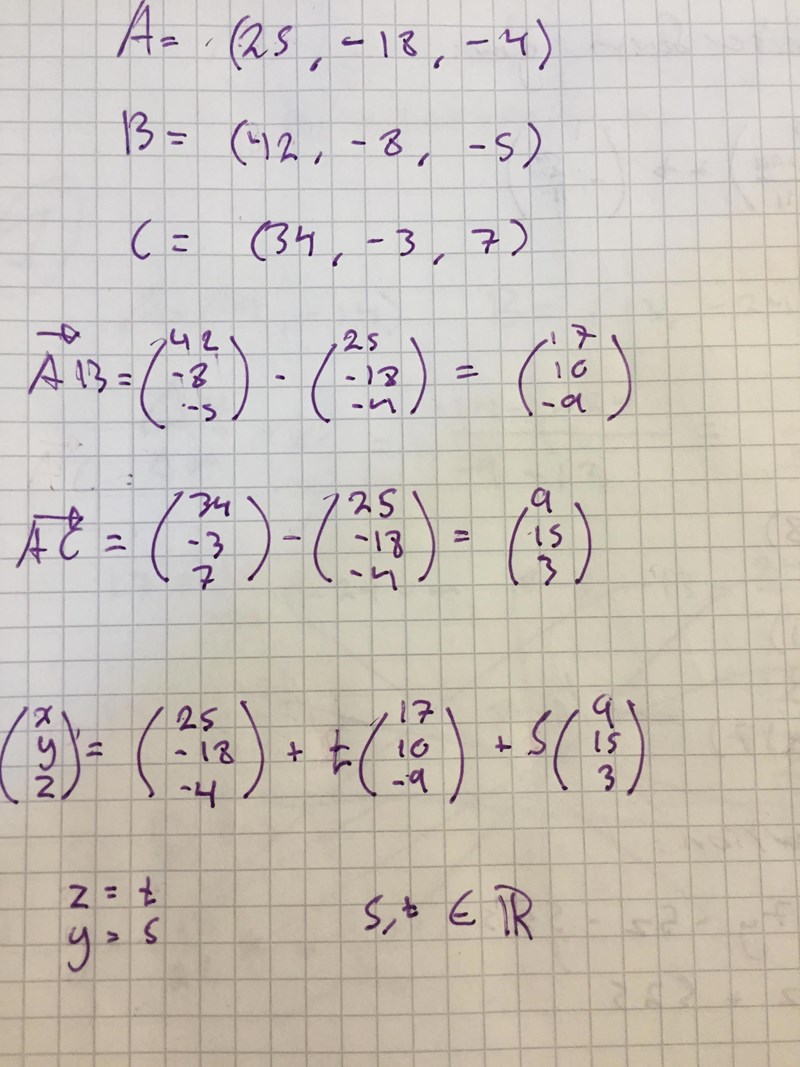 A = (25, -18, -4)
B = (42, -8, -5)
C = (34, -3, 7)
→AB = (42 -8 -5) - (25 -18 -4) = (17 10 -9)
→AC = (34 -3 7) - (25 -18 -4) = (9 15 3)
(x y z) = (25 -18 -4) + t (17 10 -9) + S (9 15 3)
z = t
y = s
s,t ∈ ℝ